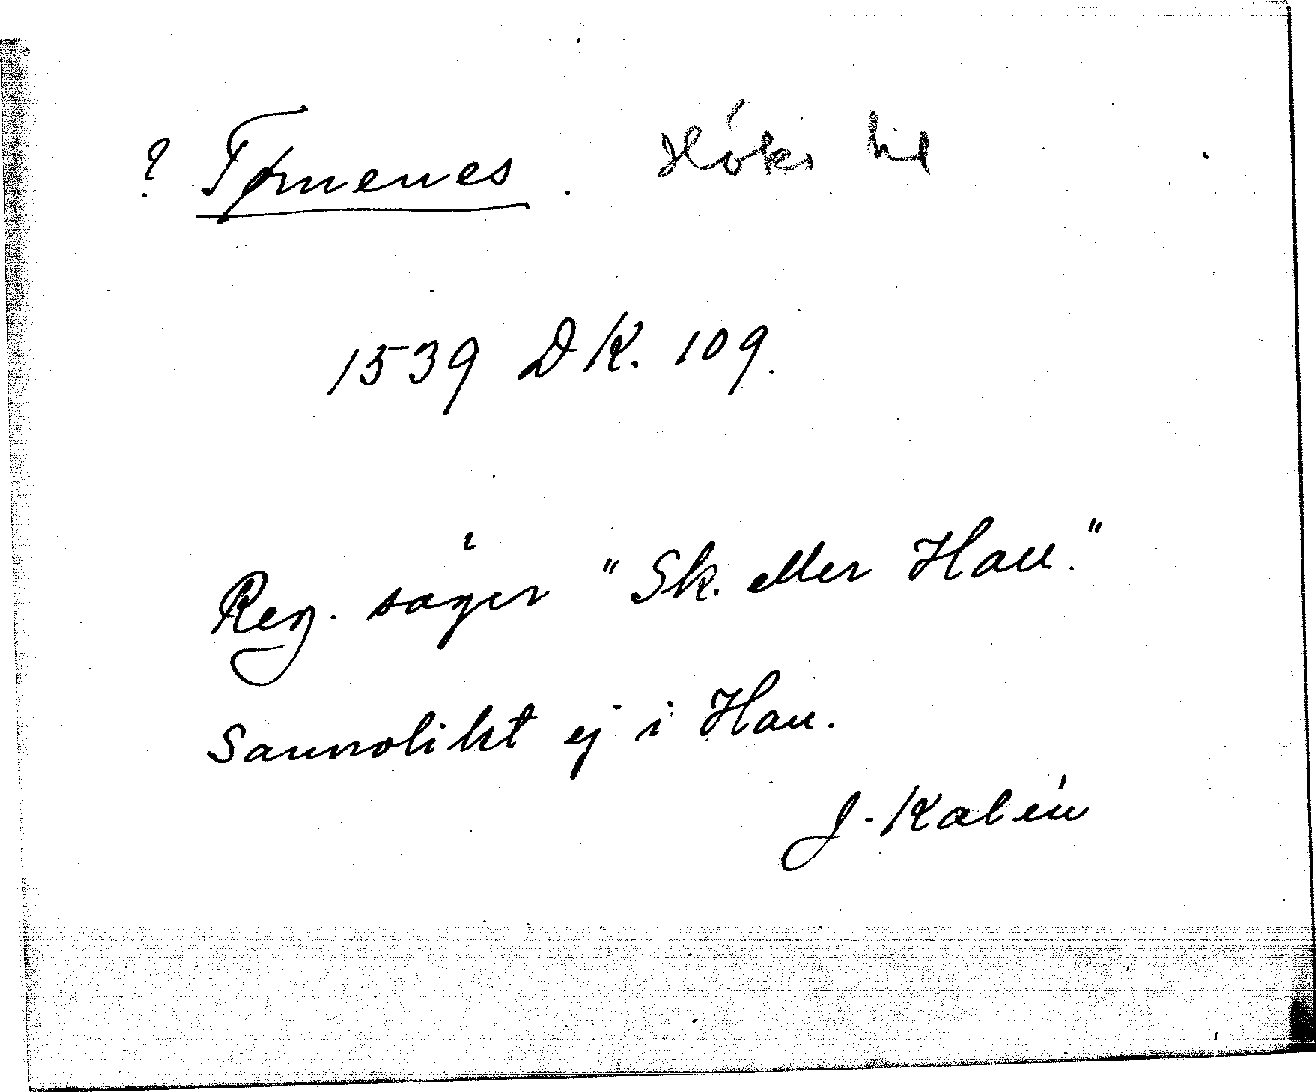 ? Tømenes. Höks hd
1539 DK. 109.
Reg. säger "Sk. eller Hall."
Sannolikt ej i Hall.
J. Kalén